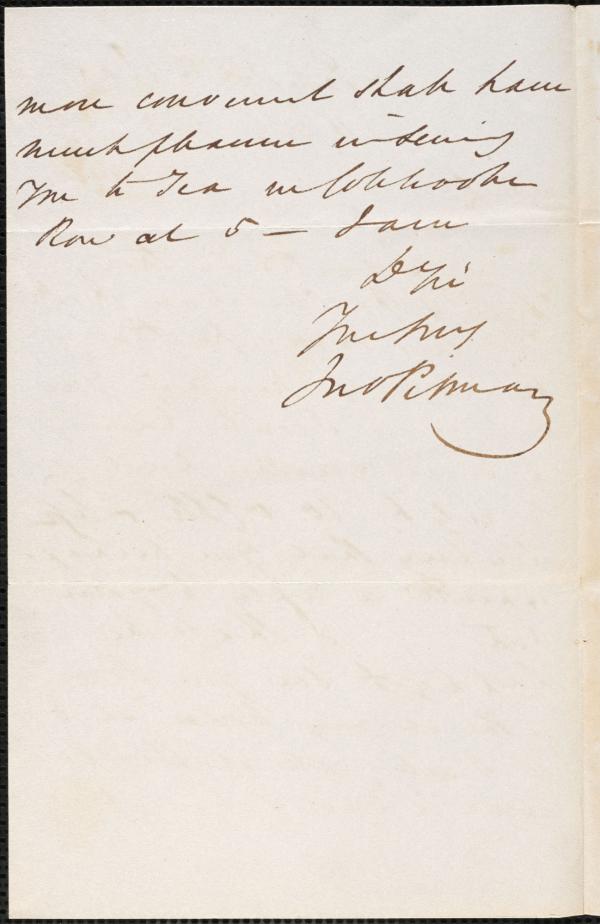 more convenient shall have
much pleasure in seeing
You to Tea in Colebrooke
Row at 5 — I am
Dr Sir
Yours truly
Jno Pitman